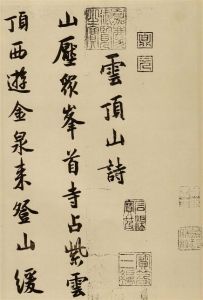 雲頂山詩
山壓衆峯首寺占紫雲
頂西遊金泉來登山緩